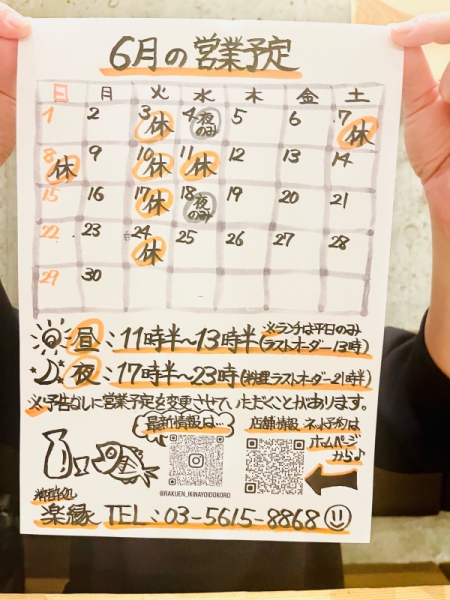 6月の営業予定
日 月 火 水 木 金 土
1 2 3休 4夜のみ 5 6 7休
8休 9 10休 11休 12 13 14
15 16 17休 18夜のみ 19 20 21
22 23 24休 25 26 27 28
29 30
昼:11時半~13時半(ラストオーダー13時)
※ランチは平日のみ
夜:17時半~23時(料理ラストオーダー21時半)
※予告なしに営業予定を変更させていただくことがあります。
最新情報は…
店舗情報 ネット予約は
ホームページ
から♪
@RAKUEN_IKINAYOIDOKORO
楽縁 TEL:03-5615-8868